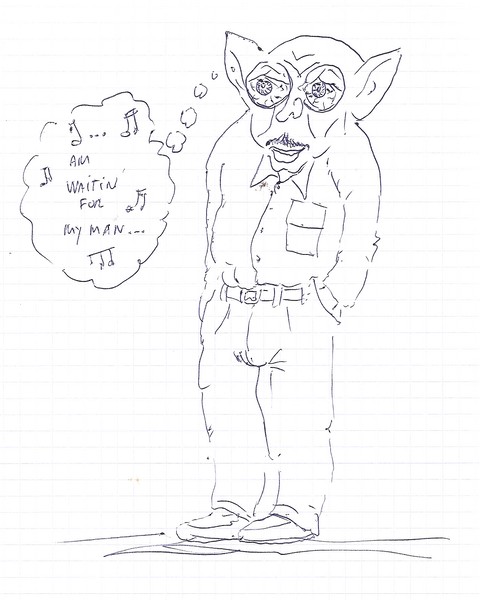 I...
AM
WAITIN'
FOR
MY MAN...